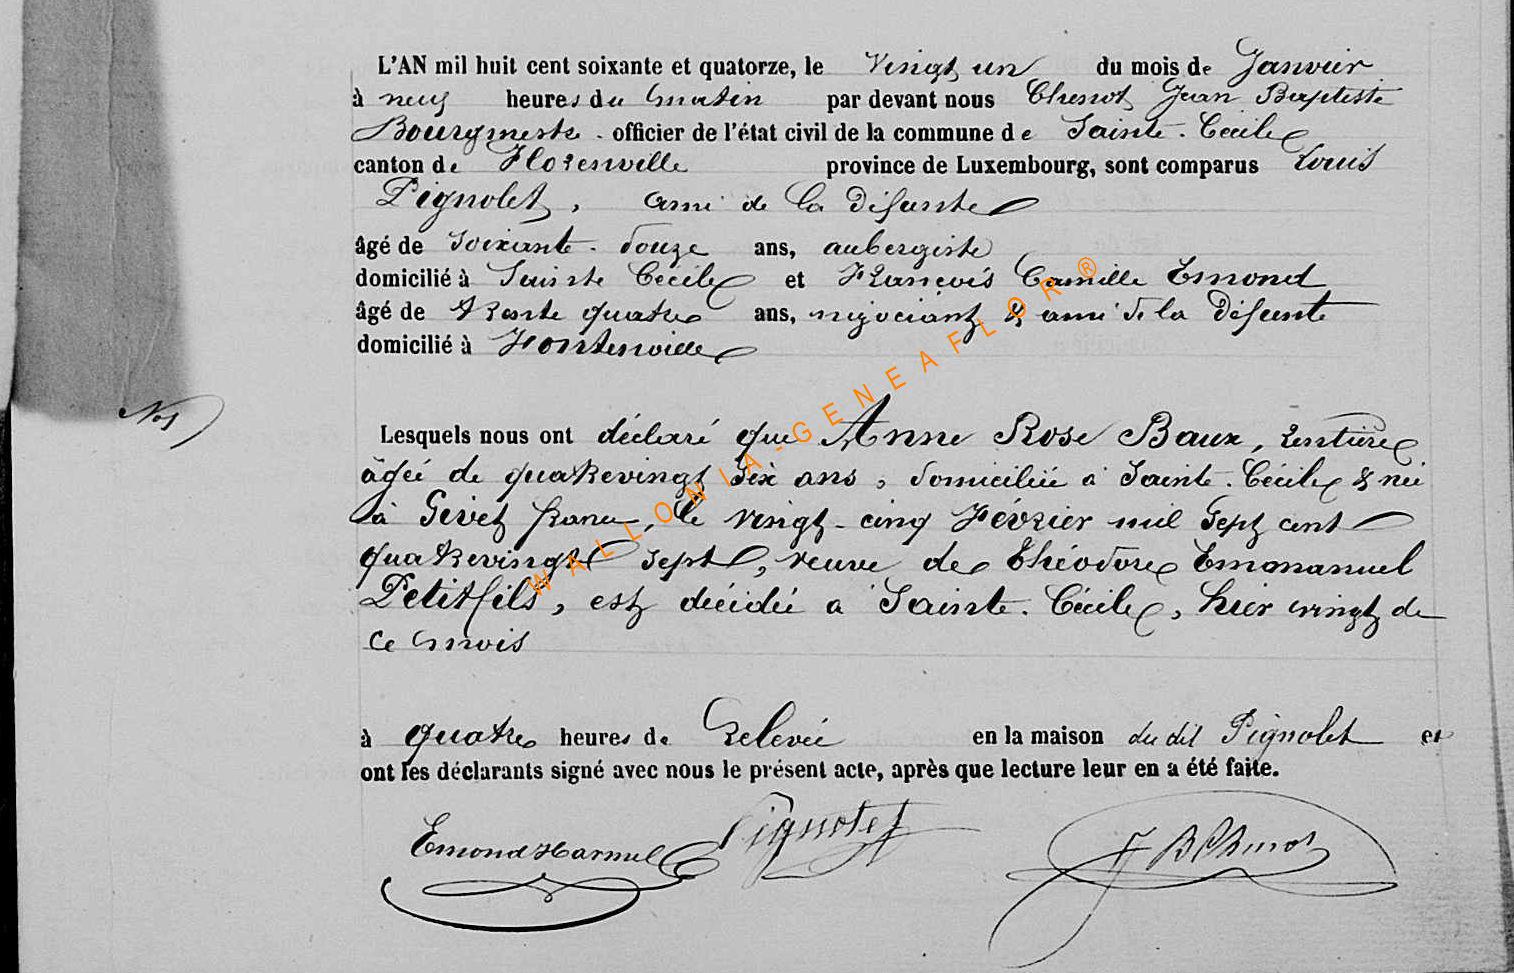 L'AN mil huit cent soixante et quatorze, le Vingt un du mois de Janvier
à neuf heures du matin par devant nous Chenot Jean Baptiste
Bourgmestre officier de l'état civil de la commune de Sainte-Cécile
canton de Florenville province de Luxembourg, sont comparus Louis
Pignolet, ami de la Défunte
âgé de soixante-douze ans, aubergiste
domicilié à Sainte Cécile et François Camille Emond
âgé de trente quatre ans, négociant & ami de la Défunte
domicilié à Fontenoille
Nos
Lesquels nous ont déclaré que Anne Rose Baux, rentière
âgée de quatrevingt six ans, domiciliée à Sainte-Cécile & née
à Givet france, le vingt-cinq Février mil sept cent
quatrevingt sept, veuve de Théodore Emmanuel
Petitfils, est décédée à Sainte-Cécile, hier vingt de
ce mois
à quatre heures de Relevée en la maison du dit Pignolet et
ont les déclarants signé avec nous le présent acte, après que lecture leur en a été faite.
Emond Harmel Pignolet J B Chenot
WALLONIA-GENEAFLOR®